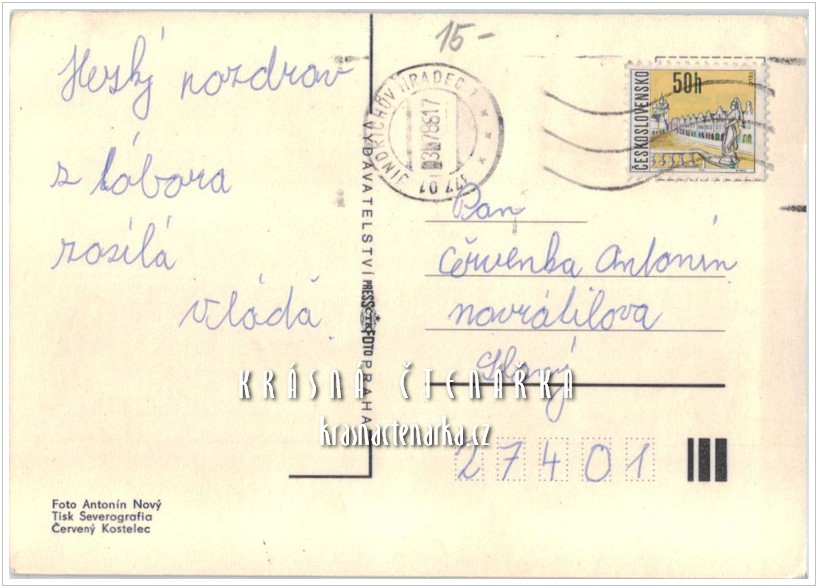 15-
Heský pozdrav
z tábora
zasílá
vláďa
JINDŘICHŮV HRADEC 1
377 01
ČESKOSLOVENSKO
50h
VYDAVATELSTVÍ PRESSFOTO PRAHA
Pan
Červenka Antonín
navrátilova
Slaný
27401
KRÁSNÁ ČTENÁŘKA
krasnactenarka.cz
Foto Antonín Nový
Tisk Severografia
Červený Kostelec